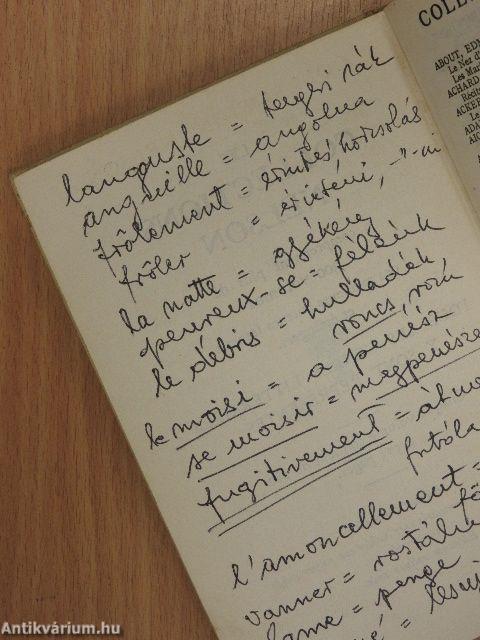 langouste = tengeri rák
anguille = angolna
frôlement = érintés, horzsolás
frôler = érinteni, -"-ni
la natte = gyékény
peureux-se = félénk
le débris = hulladék,
roncs, rom
le moisi = a penész
se moisir = megpenésze
fugitivement = átme
futóla
l'amoncellement =
vanner = rostáln
lame = penge
é =
COLL
ABOUT, ED
Le Nez d
Les Ma
ACHARD
Récit
ACKER
Le
ADA
Antikvárium.hu